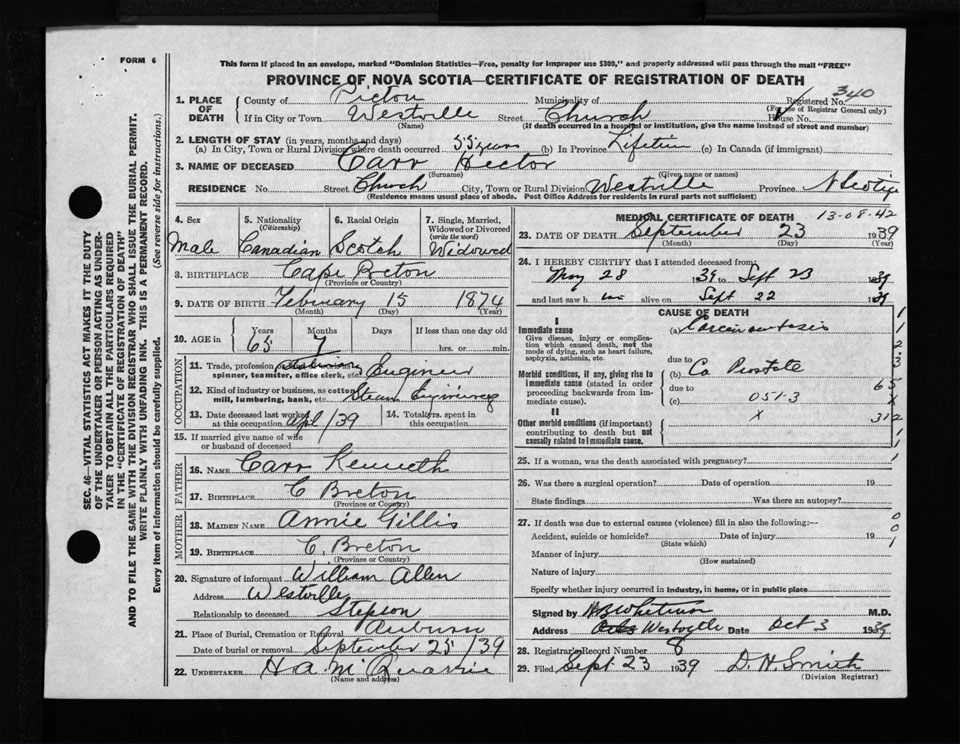 FORM 6
This form if placed in an envelope, marked "Dominion Statistics—Free, penalty for improper use $300," and properly addressed will pass through the mail "FREE"
PROVINCE OF NOVA SCOTIA—CERTIFICATE OF REGISTRATION OF DEATH
340
1. PLACE OF DEATH { County of Pictou Municipality of Registered No.
(For use of Registrar General only)
If in City or Town Westville Street Church House No.
(Name) (If death occurred in a hospital or institution, give the name instead of street and number)
2. LENGTH OF STAY (in years, months and days)
(a) In City, Town or Rural Division where death occurred 55 years (b) In Province Lifetime (c) In Canada (if immigrant)
3. NAME OF DECEASED Carr Hector
(Surname) (Given name or names)
RESIDENCE No. Street Church City, Town or Rural Division Westville Province N Scotia
(Residence means usual place of abode. Post Office Address for residents in rural parts not sufficient)
4. Sex 5. Nationality (Citizenship) 6. Racial Origin 7. Single, Married, Widowed or Divorced (write the word)
Male Canadian Scotch Widowed
8. BIRTHPLACE Cape Breton
(Province or Country)
9. DATE OF BIRTH February 15 1874
(Month) (Day) (Year)
10. AGE in { Years Months Days If less than one day old
65 7 hrs. or min.
OCCUPATION
11. Trade, profession Engineer
spinner, teamster, office clerk, etc.
12. Kind of industry or business, as cotton mill, lumbering, bank, etc. Steam Engineering
13. Date deceased last worked at this occupation Apl/39 14. Total yrs. spent in this occupation
15. If married give name of wife or husband of deceased
FATHER
16. NAME Carr Kenneth
17. BIRTHPLACE C Breton
(Province or Country)
MOTHER
18. MAIDEN NAME Annie Gillis
19. BIRTHPLACE C. Breton
(Province or Country)
20. Signature of informant William Allen
Address Westville
Relationship to deceased Stepson
21. Place of Burial, Cremation or Removal Auburn
Date of burial or removal September 25/39
22. UNDERTAKER H A McQuarrie
(Name and address)
MEDICAL CERTIFICATE OF DEATH 13-08-42
23. DATE OF DEATH September 23 1939
(Month) (Day) (Year)
24. I HEREBY CERTIFY that I attended deceased from:
May 28 39 to Sept 23 1939
and last saw h im alive on Sept 22 1939
CAUSE OF DEATH
I
Immediate cause (a) Carcinomatosis
Give disease, injury, or complication which caused death, not the mode of dying, such as heart failure, asphyxia, asthenia, etc.
due to
Morbid conditions, if any, giving rise to immediate cause (stated in order proceeding backwards from immediate cause). (b) Ca Prostate
due to
(c) 051-3
II
Other morbid conditions (if important) contributing to death but not causally related to immediate cause. X
25. If a woman, was the death associated with pregnancy?
26. Was there a surgical operation? Date of operation 19
State findings Was there an autopsy?
27. If death was due to external causes (violence) fill in also the following:—
Accident, suicide or homicide? Date of injury 19
(State which)
Manner of injury
(How sustained)
Nature of injury
Specify whether injury occurred in industry, in home, or in public place
Signed by M.D.
Address Westville Date Oct 3 1939
28. Registrar's Record Number 8
29. Filed Sept 23 1939 D. H. Smith
(Division Registrar)
SEC. 46—VITAL STATISTICS ACT MAKES IT THE DUTY
OF THE UNDERTAKER OR PERSON ACTING AS UNDER-
TAKER TO OBTAIN ALL THE PARTICULARS REQUIRED
IN THE "CERTIFICATE OF REGISTRATION OF DEATH"
AND TO FILE THE SAME WITH THE DIVISION REGISTRAR WHO SHALL ISSUE THE BURIAL PERMIT.
WRITE PLAINLY WITH UNFADING INK. THIS IS A PERMANENT RECORD.
Every item of information should be carefully supplied. (See reverse side for instructions.)